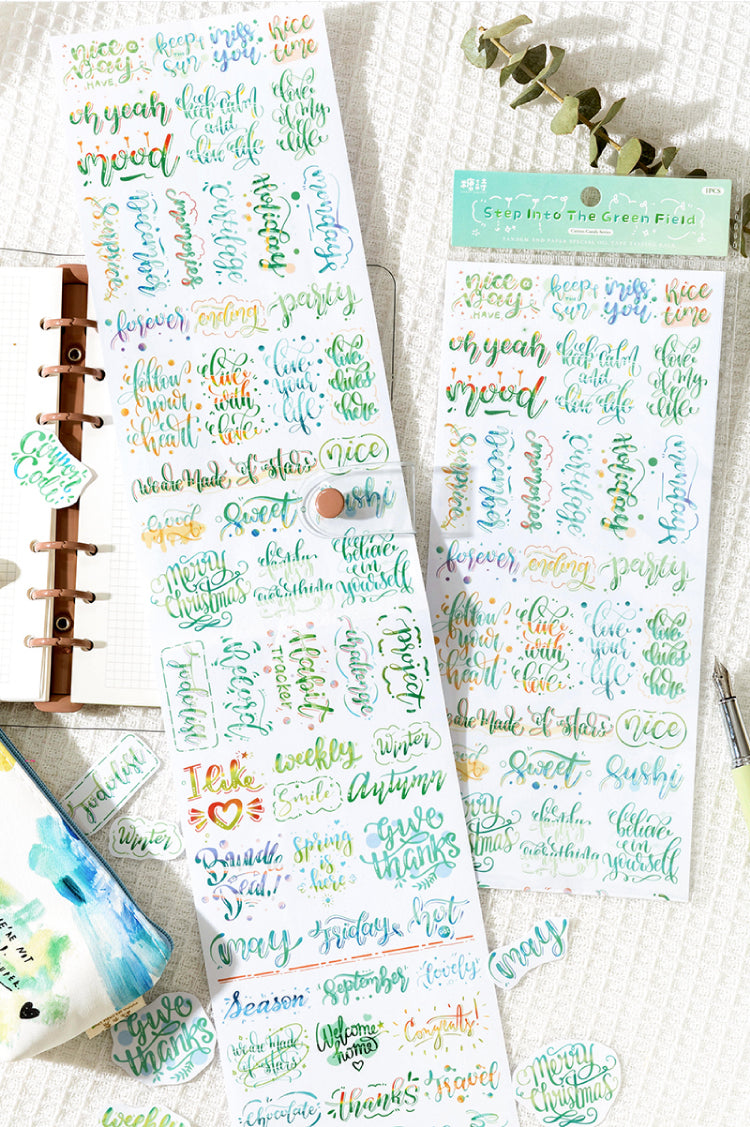 nice a
day
HAVE
keep
THE
sun
miss
you
nice
time
oh yeah
mood
keep calm
and
live life
love
of my
life
Surprise
December
memories
Holiday
Sunday
forever
ending
party
follow
your
heart
live
with
love
love
your
life
love
lives
here
we are Made of stars
nice
Good
Sweet
Sushi
Merry
Christmas
family
is
everything
believe
in
yourself
Todolist
Weekend
Habit
TRACKER
project
I like
weekly
Smile
Winter
Autumn
Bundle
Deal!
Spring
is
here
Give
thanks
may
Friday
hot
Season
September
lovely
we are Made
of stars
Welcome
home
Congrats!
Chocolate
thanks
travel
Step Into The Green Field
Cotton Candy Series
1PCS
RANDOM AND PAPER SPECIAL OIL TAPE TASTING PACK
nice a
day
HAVE
keep
THE
sun
miss
you
nice
time
oh yeah
mood
keep calm
and
live life
love
of my
life
Surprise
December
memories
Holiday
Sunday
forever
ending
party
follow
your
heart
live
with
love
love
your
life
love
lives
here
we are Made of stars
nice
Good
Sweet
Sushi
Merry
Christmas
family
is
everything
believe
in
yourself
Coupon
Code
Todolist
Winter
WE'RE NOT
Give
thanks
weekly
may
Merry
Christmas